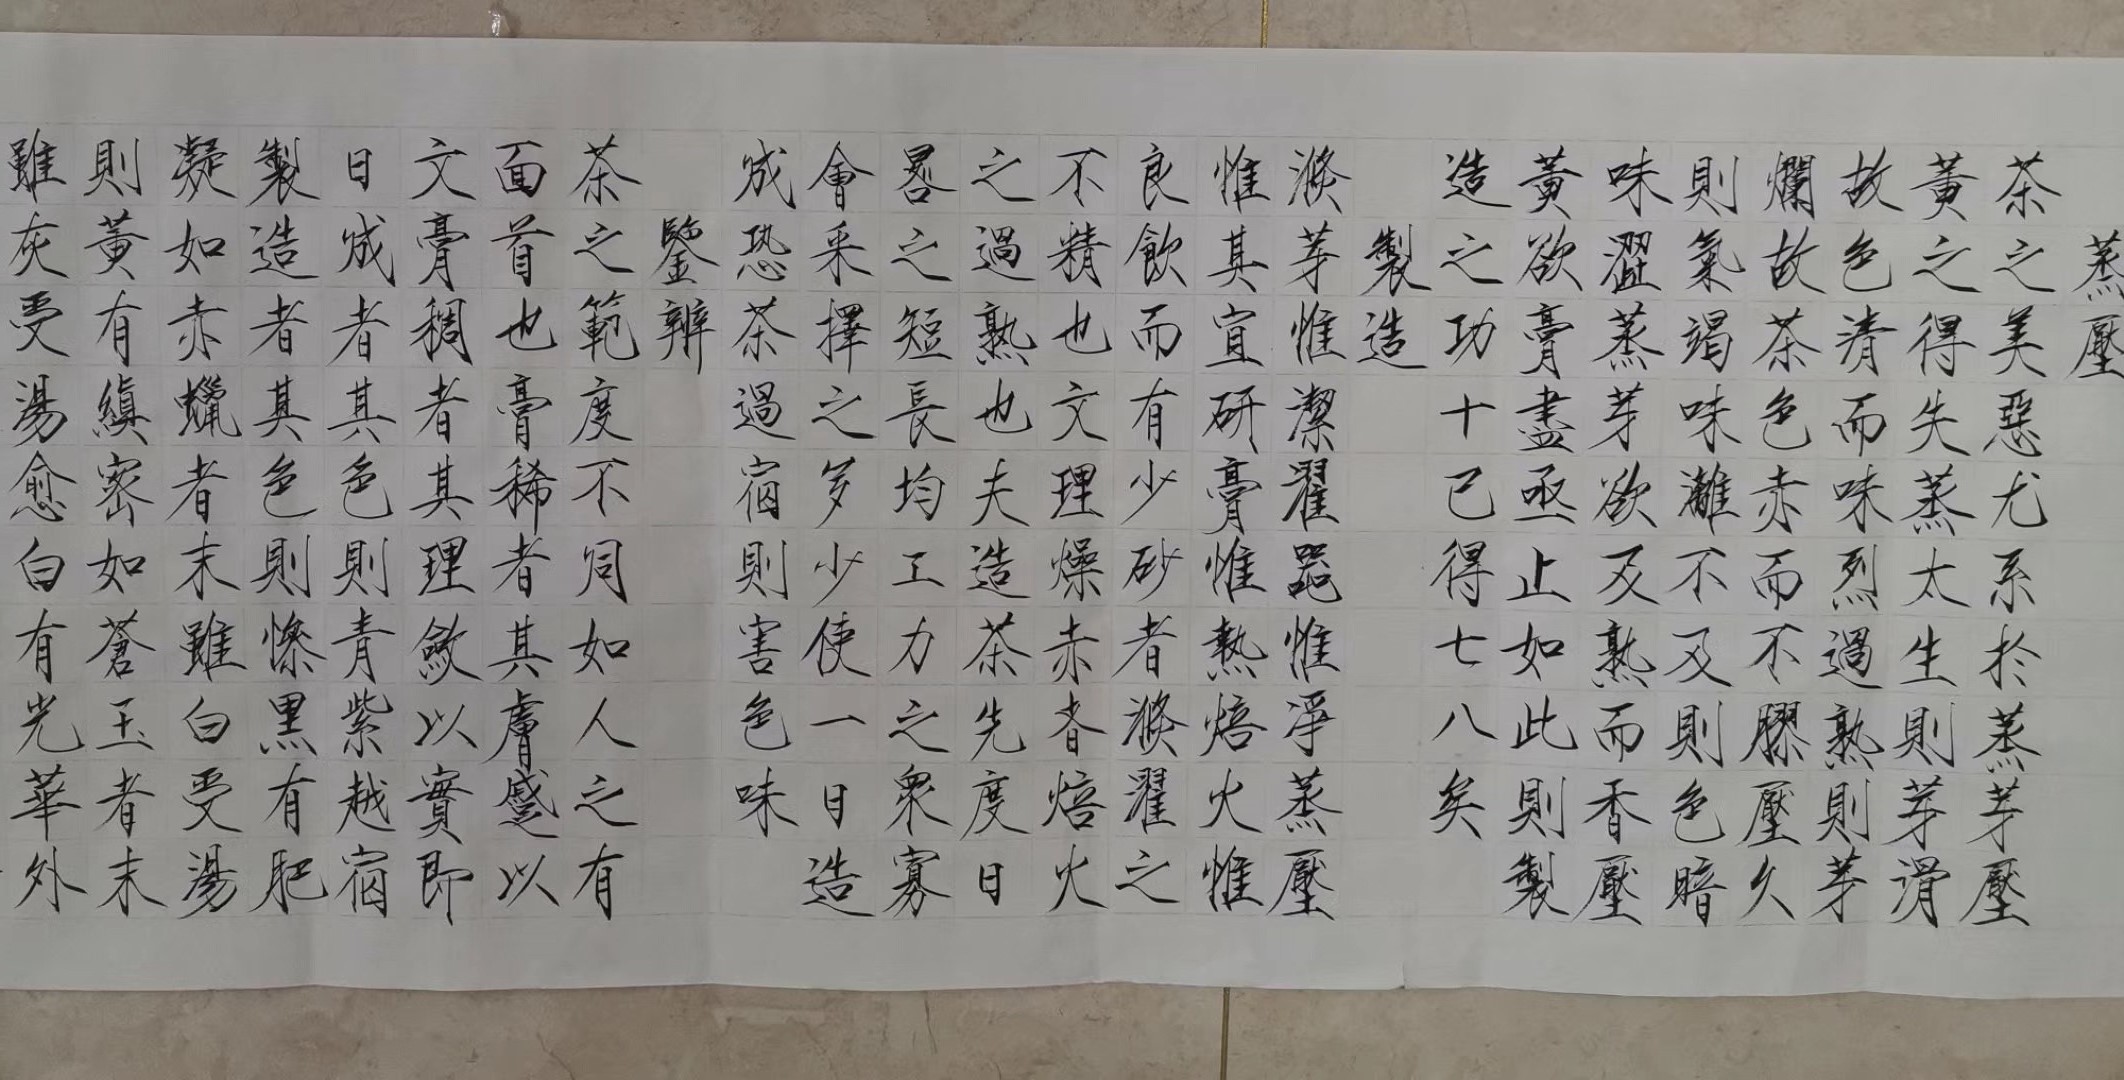 蒸壓
茶之美惡尤系於蒸芽壓
黃之得失蒸太生則芽滑
故色清而味烈過熟則芽
爛故茶色赤而不膠壓久
則氣竭味漓不及則色暗
味澀蒸芽欲及熟而香壓
黃欲膏盡亟止如此則製
造之功十已得七八矣
製造
滌芽惟潔濯器惟淨蒸壓
惟其宜研膏惟熱焙火惟
良飲而有少砂者滌濯之
不精也文理燥赤者焙火
之過熟也夫造茶先度日
晷之短長均工力之眾寡
會采擇之多少使一日造
成恐茶過宿則害色味
鑒辨
茶之範度不同如人之有
面首也膏稀者其膚蹙以
文膏稠者其理斂以實即
日成者其色則青紫越宿
製造者其色則慘黑有肥
凝如赤蠟者末雖白受湯
則黃有縝密如蒼玉者末
雖灰受湯愈白有光華外